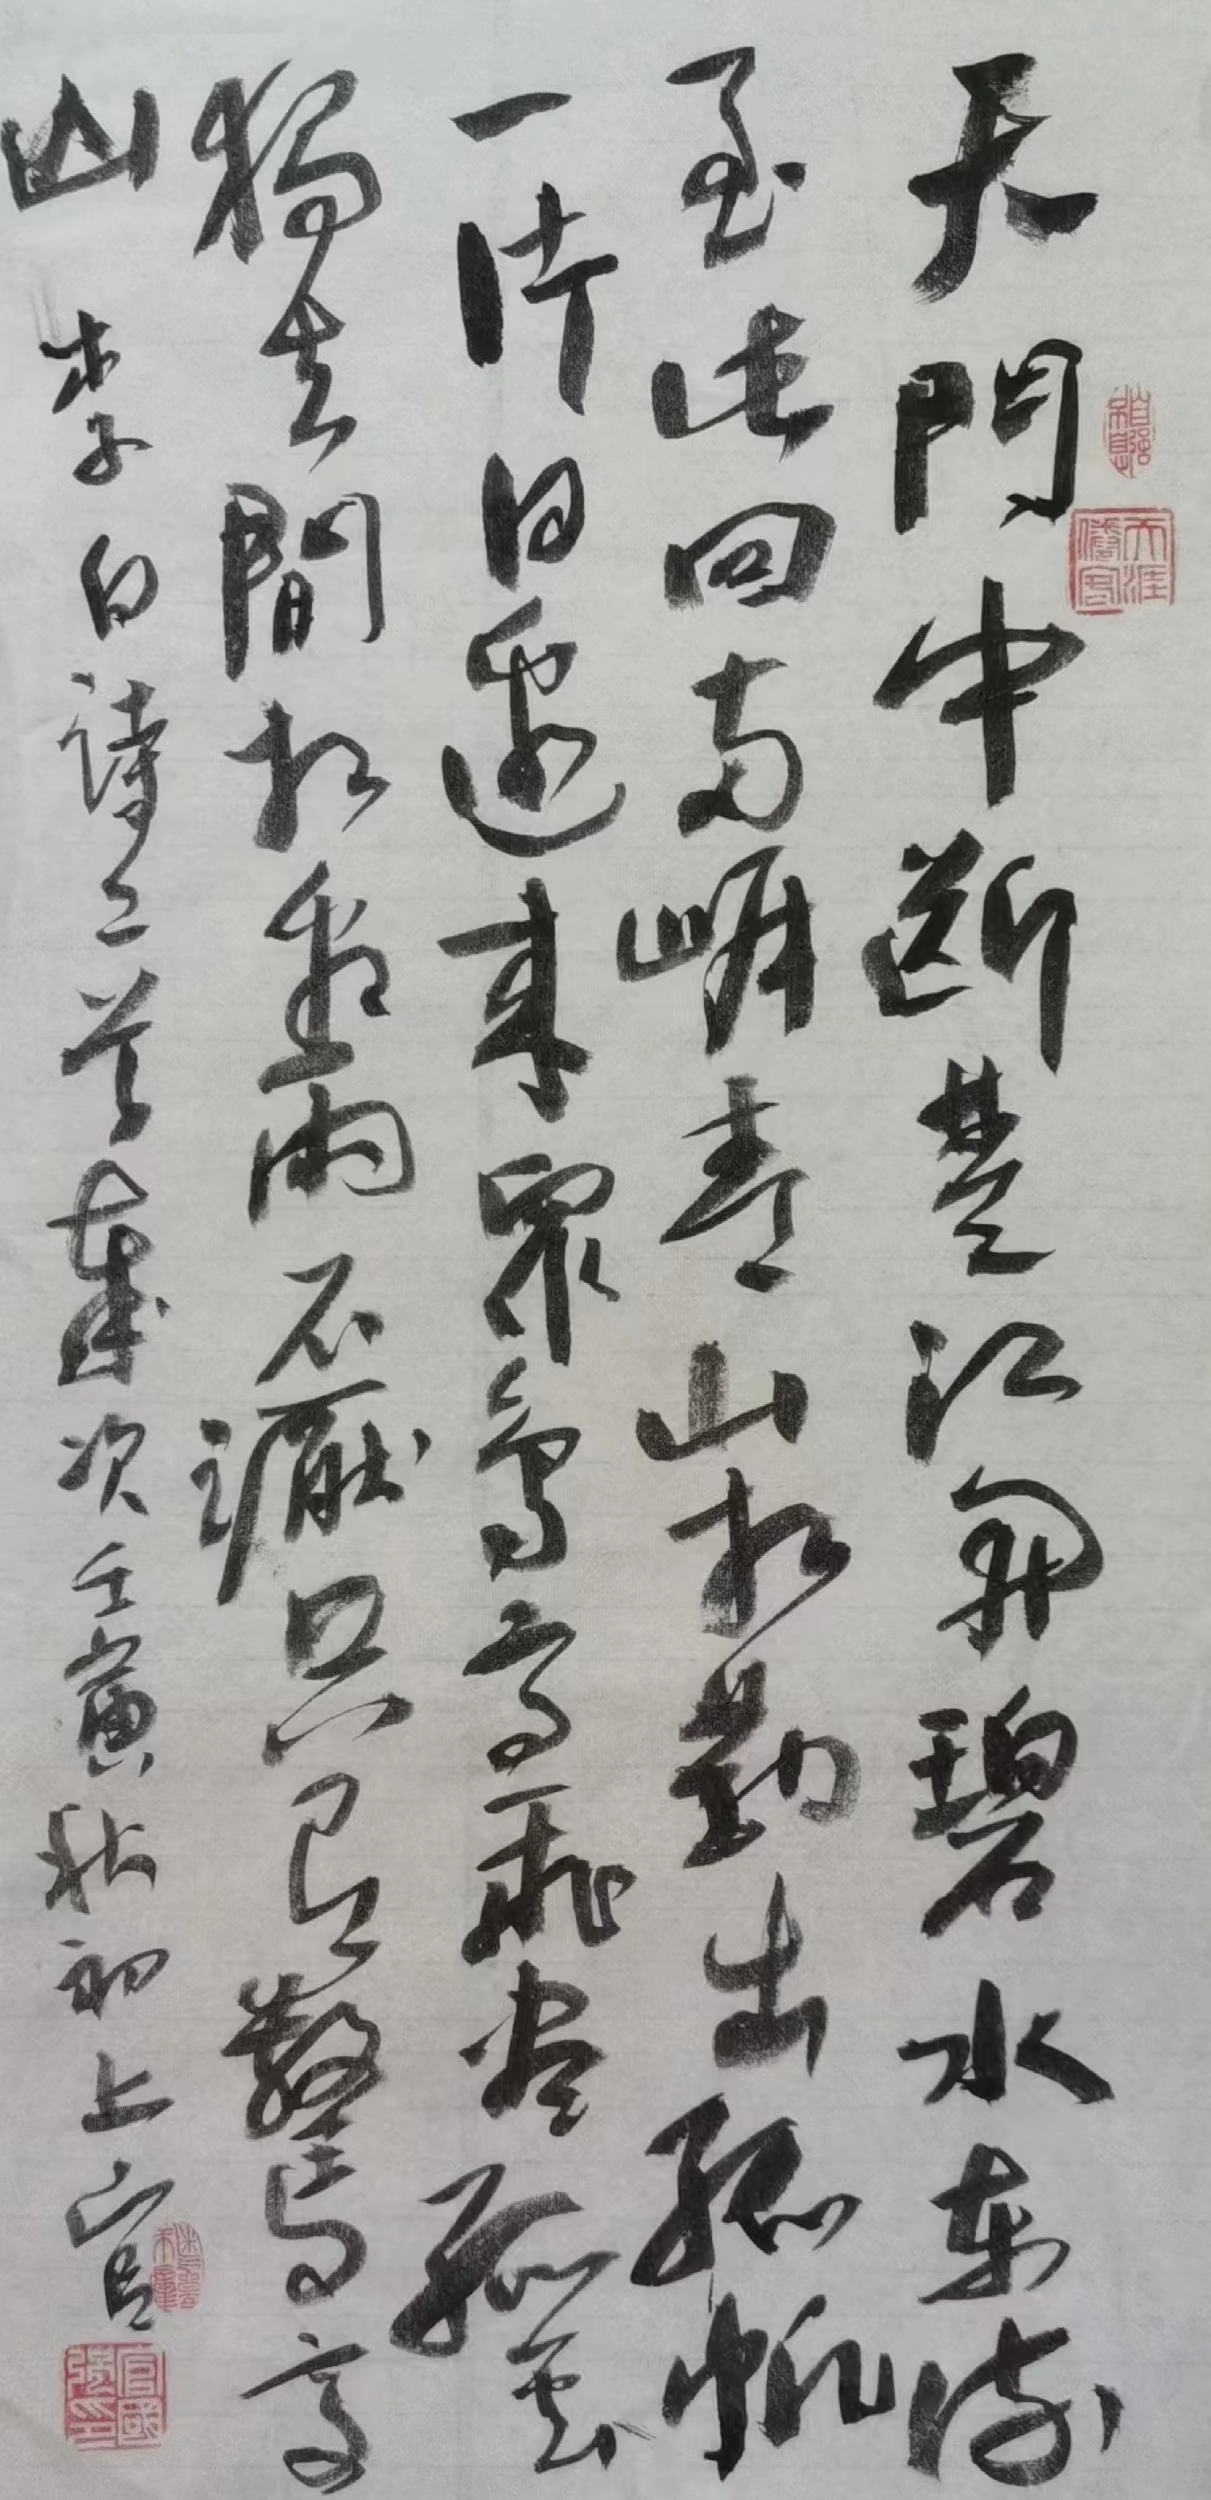 天門中斷楚江開碧水東流
至此回兩岸青山相對出孤帆
一片日邊來眾鳥高飛盡孤雲
獨去間相看兩不厭只有敬亭
山 李白詩二首 歲次壬寅秋初上官
官國強印